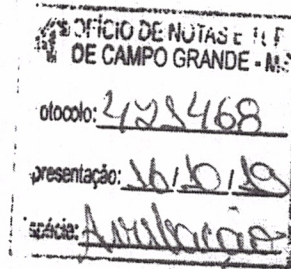 OFÍCIO DE NOTAS E
DE CAMPO GRANDE - MS
otocolo: 421468
presentação: 16/10/19
espécie: Averbação